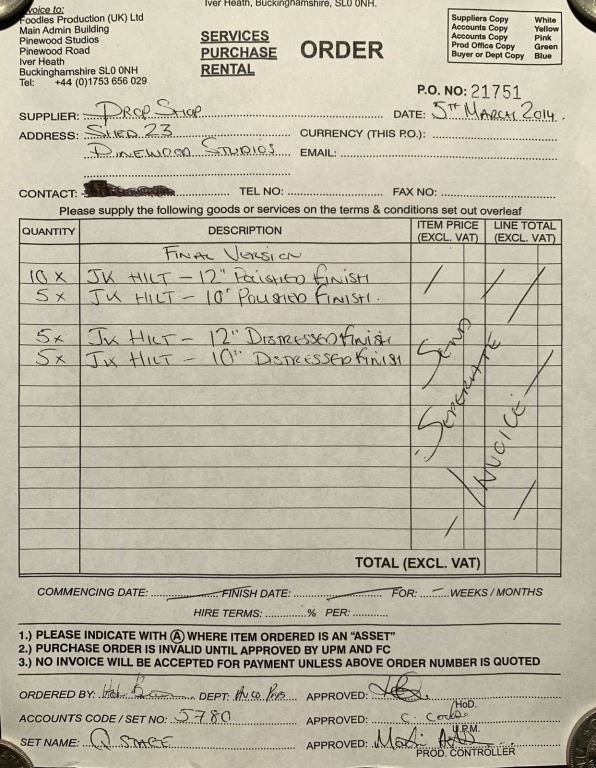 Iver Heath, Buckinghamshire, SL0 0NH.
voice to:
Foodles Production (UK) Ltd
Main Admin Building
Pinewood Studios
Pinewood Road
Iver Heath
Buckinghamshire SL0 0NH
Tel: +44 (0)1753 656 029
SERVICES
PURCHASE
RENTAL
ORDER
Suppliers Copy White
Accounts Copy Yellow
Accounts Copy Pink
Prod Office Copy Green
Buyer or Dept Copy Blue
P.O. NO: 21751
SUPPLIER: PROP SHOP DATE: 5TH MARCH 2014.
ADDRESS: SHED 23 CURRENCY (THIS P.O.):
PINEWOOD STUDIOS EMAIL:
CONTACT: TEL NO: FAX NO:
Please supply the following goods or services on the terms & conditions set out overleaf
QUANTITY DESCRIPTION ITEM PRICE (EXCL. VAT) LINE TOTAL (EXCL. VAT)
FINAL VERSION
10 x JK HILT - 12" POLISHED FINISH
5 x JK HILT - 10" POLISHED FINISH.
5x JK HILT - 12" DISTRESSED FINISH
5x JK HILT - 10" DISTRESSED FINISH
SEND
SEPERATE
INVOICE
TOTAL (EXCL. VAT)
COMMENCING DATE: FINISH DATE: FOR: WEEKS / MONTHS
HIRE TERMS: % PER:
1.) PLEASE INDICATE WITH A WHERE ITEM ORDERED IS AN "ASSET"
2.) PURCHASE ORDER IS INVALID UNTIL APPROVED BY UPM AND FC
3.) NO INVOICE WILL BE ACCEPTED FOR PAYMENT UNLESS ABOVE ORDER NUMBER IS QUOTED
ORDERED BY: DEPT: APPROVED:
HoD.
ACCOUNTS CODE / SET NO: 5780 APPROVED:
U.P.M.
SET NAME: Q STAGE APPROVED:
PROD. CONTROLLER